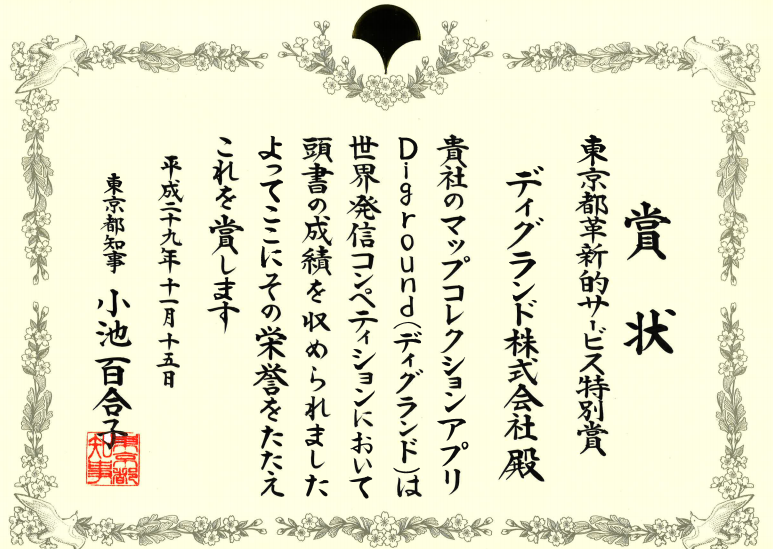 賞状
東京都革新的サービス特別賞
ディグランド株式会社 殿
貴社のマップコレクションアプリ
Diground(ディグランド)は
世界発信コンペティションにおいて
頭書の成績を収められました
よってここにその栄誉をたたえ
これを賞します
平成二十九年十一月十五日
東京都知事 小池百合子
東京都知事